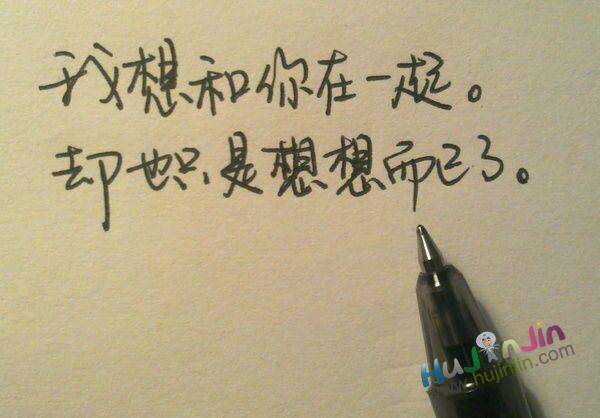 我想和你在一起。
却也只是想想而已了。
HuJinJin
www.hujinjin.com